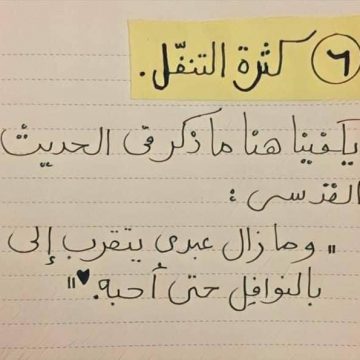 ٦ كثرة التنفّل.
يكفينا هنا ما ذكر فى الحديث
القدسى :
" وما زال عبدى يتقرب إلى
بالنوافل حتى أحبه.♥"